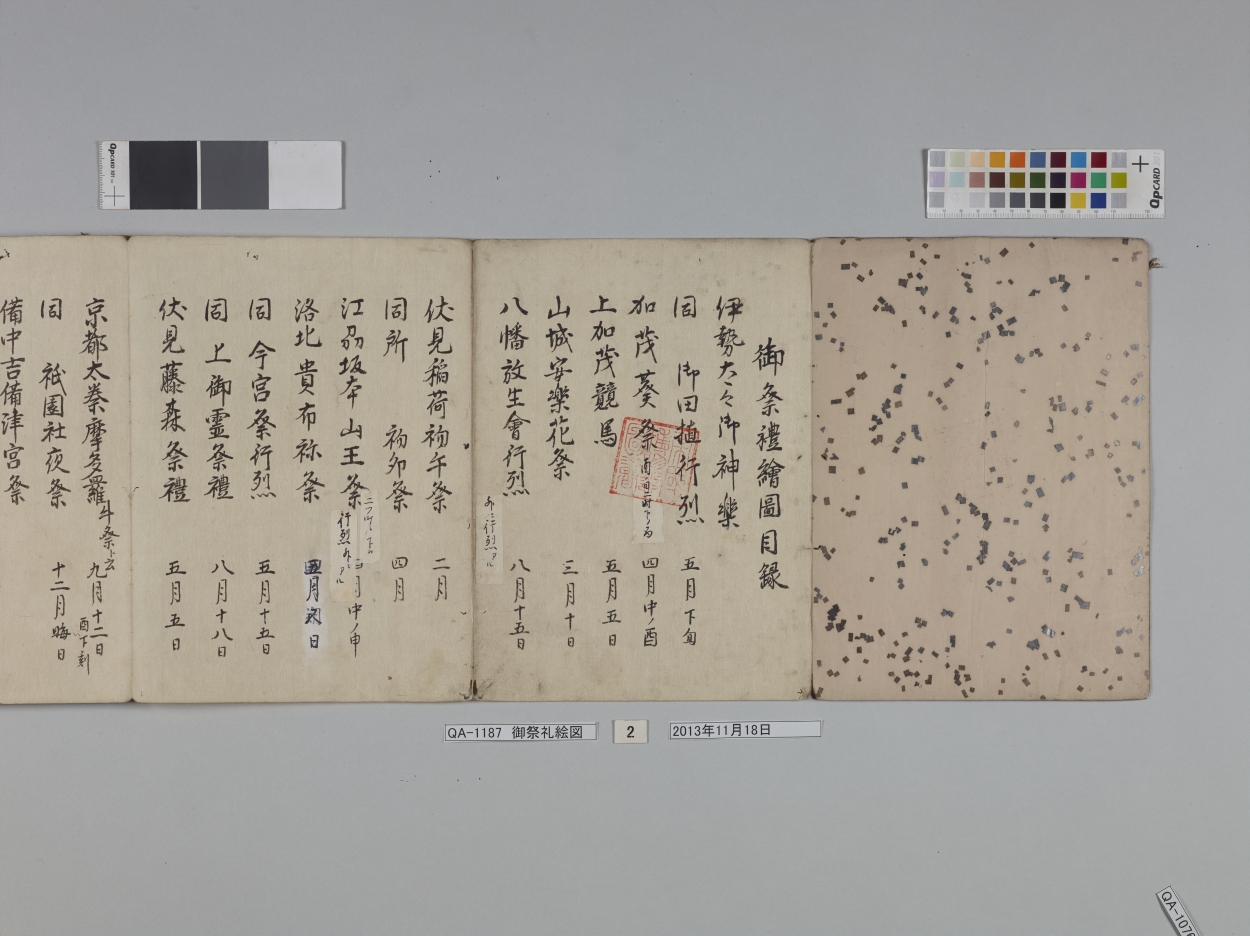 御祭禮繪圖目録
伊勢大々御神樂
同 御田植行烈 五月下旬
加茂葵祭 四月中ノ酉
上加茂競馬 五月五日
山城安樂花祭 三月十日
八幡放生會行烈 八月十五日
外ニ行烈アル
伏見稲荷初午祭 二月
同所 初卯祭 四月
江刕坂本山王祭 四月中ノ申
行烈外ニアル
洛北貴布祢祭 月朔日
同 今宮祭行烈 五月十五日
同 上御霊祭禮 八月十八日
伏見藤森祭禮 五月五日
京都太秦摩多羅牛祭ト云 九月十二日
酉下刻
同 祇園社夜祭 十二月晦日
備中吉備津宮祭
QA-1187 御祭礼絵図
2
2013年11月18日
QpCARD 101
QpCARD
QA-1076